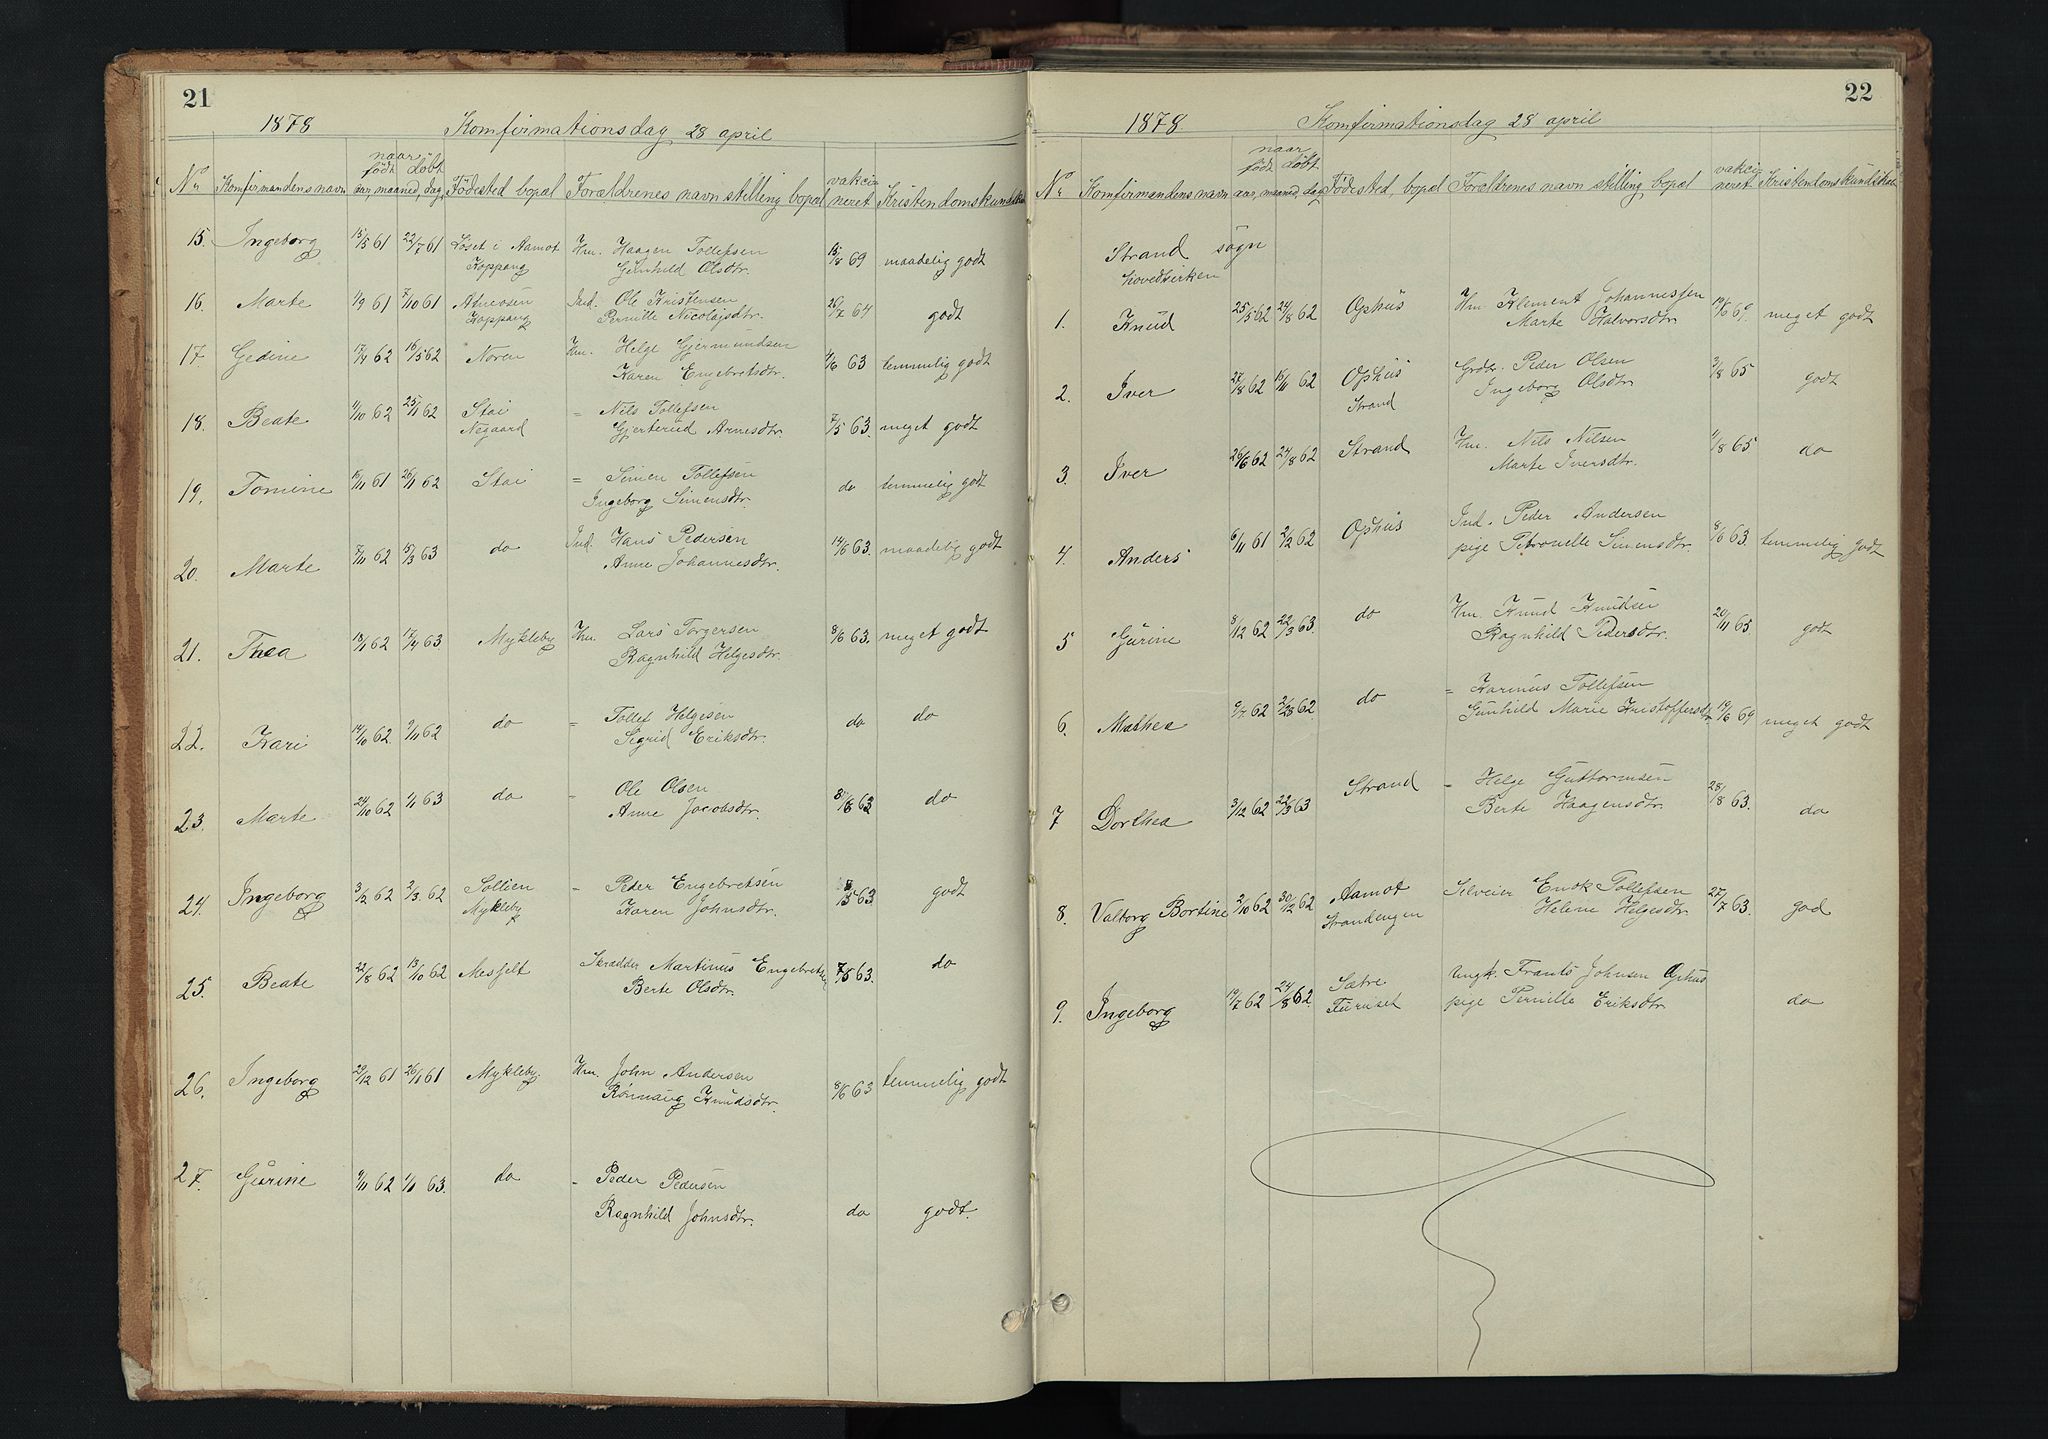 21
1878 Konfirmationsdag 28 april
naar
født døbt vakci-
Nr Konfirmandens navn aar, maaned, dag Fødested bopæl Forældrenes navn stilling bopæl neret Kristendomskundskab
15. Ingeborg 15/5 61 22/7 61 Løset i Aamot Hm. Haagen Tollefsen 15/8 69 maadelig godt
Koppang Gunhild Olsdtr.
16. Marte 1/9 61 7/10 61 Atneosen Ind. Ole Kristensen 26/7 64 godt
Koppang Pernille Nicolajsdtr.
17. Gedine 17/4 62 16/5 62 Noren Hm. Helge Gjermundsen 4/6 63 temmelig godt
Karen Engebretsdtr.
18. Beate 1/10 62 25/11 62 Stai = Nils Tollefsen 7/5 63. meget godt
Negaard Gjertrud Arnesdtr.
19. Tomine 15/11 61 26/1 62 Stai = Simen Tollefsen do temmelig godt
Ingeborg Simensdtr.
20. Marte 7/11 62 15/3 63 do Ind. Hans Pedersen 14/6 63. maadelig godt
Anne Johannesdtr.
21. Thea 13/11 62 17/4 63. Mykleby Hm. Lars Torgersen 8/6 63. meget godt
Ragnhild Helgesdtr.
22. Kari 14/10 62. 9/11 62 do = Tollef Helgesen do do
Sigrid Eriksdtr.
23. Marte 24/10 62 1/1 63 do = Ole Olsen 8/6 63 do
Anne Jacobsdtr.
24. Ingeborg 3/2 62 2/3. 62 Sollien = Peder Engebretsen 5 63 godt
Mykleby Karen Johnsdtr.
25. Beate 22/8 62 13/10 62 Messelt Skrædder Martinus Engebretsen 7/5 63. do
Berte Olsdtr.
26. Ingeborg 29/12 61 26/1 61 Mykleby. Hm. John Andersen 8/6 63 temmelig godt
Rønnaug Knudsdtr.
27. Gurine 9/11 62 1/1 63. do = Peder Pedersen
Ragnhild Johnsdtr. do godt.
22
1878. Konfirmationsdag 28 april
naar
født døbt vakci-
Nr Konfirmandens navn aar, maaned, dag Fødested, bopæl Forældrenes navn stilling bopæl neret Kristendomskundskab
Strand sogn
hovedkirken
1. Knud 25/5 62 24/8 62 Ophus Hm Klement Johannessen 19/6 69. meget godt
Marte Halvorsdtr.
2. Iver 27/8 62 16/11 62 Ophus Grdbr. Peder Olsen 3/8 65 godt
Strand Ingeborg Olsdtr.
3. Iver 26/6 62 24/8 62 Strand Hm. Nils Nilsen 1/8 65 do
Marte Iversdtr.
4. Anders 6/11 61 2/2 62 Ophus Ind. Peder Andersen 8/6 63. temmelig godt
pige Petronelle Simensdtr.
5 Gurine 8/12 62 22/3 63. do Hm. Knud Knudsen 20/11 65. godt
Ragnhild Pedersdtr.
6. Mathea 9/7 62 2/8 62 do = Karinus Tollefsen
Gunhild Marie Kristoffersdtr 19/6 69 meget godt
7 Dorthea 3/12 62 22/3 63 Strand = Helge Guttormsen 28/8 63. do
Berte Haagensdtr.
8. Valborg Bortine 2/10 62 30/12 62 Aamot Selveier Enok Tollefsen 27/7 63. god
Strandengen Helene Helgesdtr.
9. Ingeborg 19/7 62 24/8 62. Sætre Ungk. Frants Johnsen Ophus do
Furuset pige Pernille Eriksdtr.